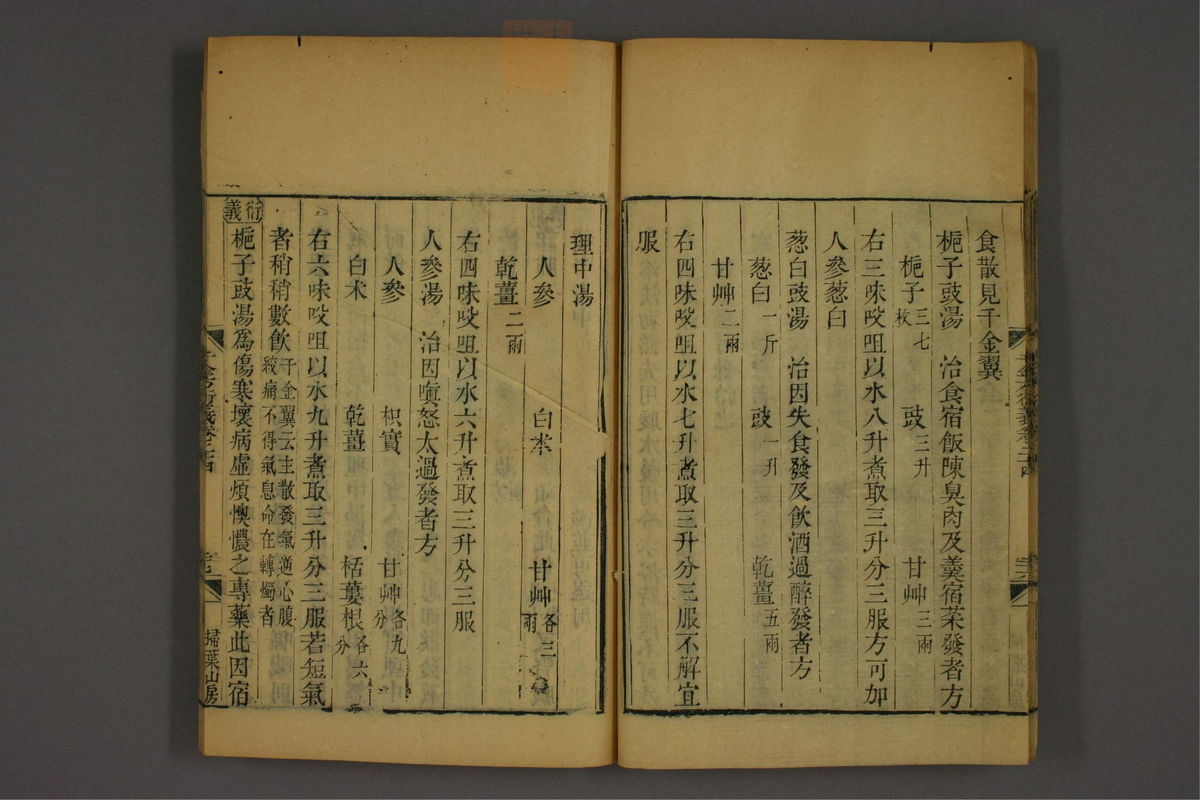 食散見千金翼
梔子豉湯　治食宿飯陳臭肉及羹宿菜發者方
梔子三七枚　豉三升　甘艸三兩
右三味㕮咀以水八升煮取三升分三服方可加
人參葱白
葱白豉湯　治因失食發及飲酒過醉發者方
葱白一斤　豉一升　乾薑五兩
甘艸二兩
右四味㕮咀以水七升煮取三升分三服不解宜
服
理中湯
人參　白朮　甘艸各三兩
乾薑二兩
右四味㕮咀以水六升煮取三升分三服
人參湯　治因嗔怒太過發者方
人參　枳實　甘艸各九分
白朮　乾薑　栝蔞根各六分
右六味㕮咀以水九升煮取三升分三服若短氣
者稍稍數飲千金翼云主散發氣逆心腹絞痛不得氣息命在轉燭者
衍義
梔子豉湯爲傷寒壞病虛煩懊憹之專藥此因宿
千金方衍義卷二十四
掃葉山房